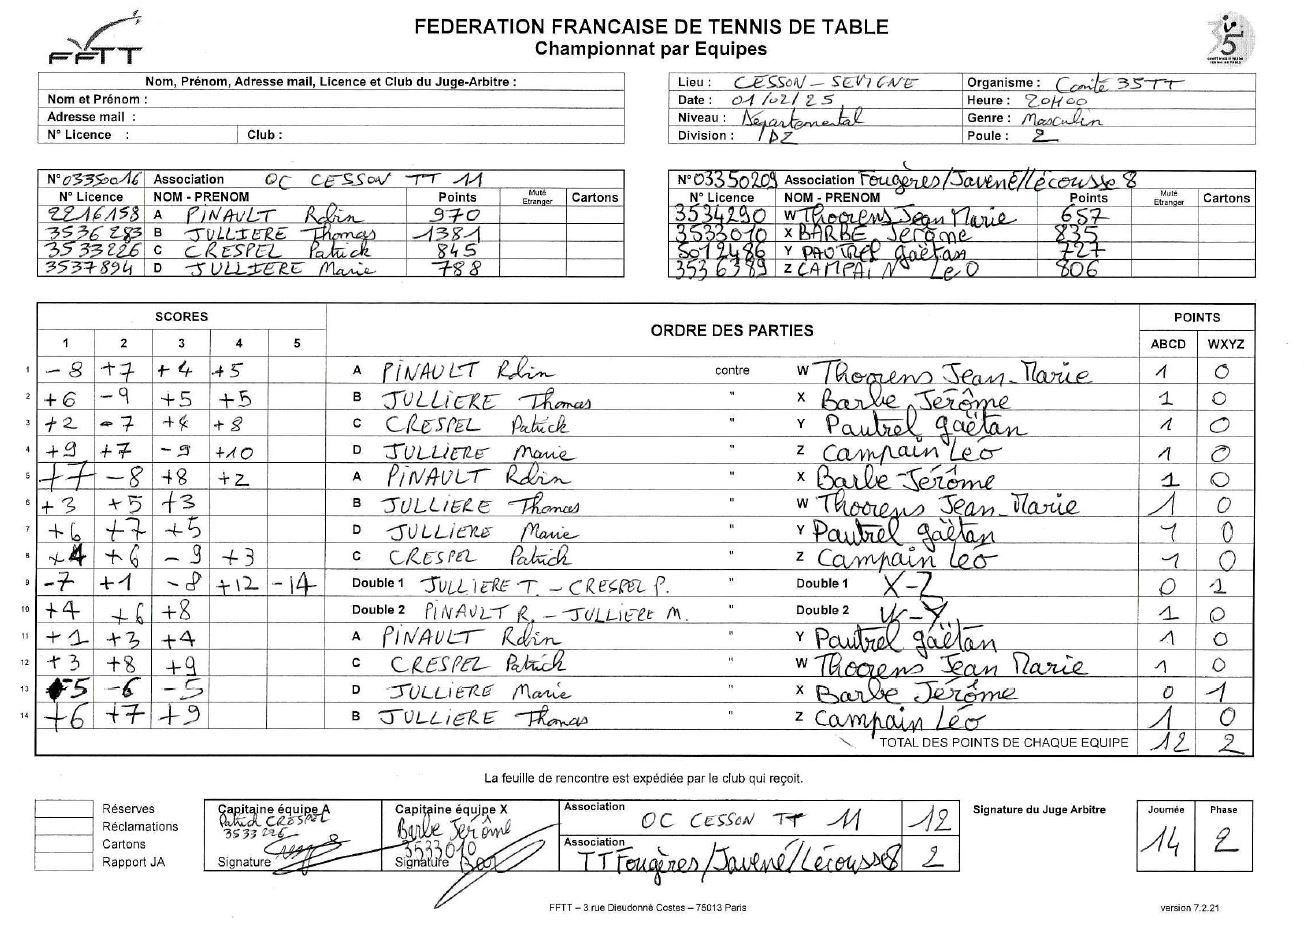 FFTT
FEDERATION FRANCAISE DE TENNIS DE TABLE
Championnat par Equipes
Nom, Prénom, Adresse mail, Licence et Club du Juge-Arbitre :
Nom et Prénom :
Adresse mail :
N° Licence : Club :
Lieu : CESSON - SEVIGNE Organisme : Comité 35TT
Date : 01/02/25 Heure : 20H00
Niveau : Départemental Genre : Masculin
Division : D2 Poule : 2
N° 03350016 Association OC CESSON TT 11
N° Licence NOM - PRENOM Points Muté Etranger Cartons
2216158 A PINAULT Robin 970
3536283 B JULLIERE Thomas 1381
3533226 C CRESPEL Patrick 845
3537894 D JULLIERE Marie 788
N° 03350209 Association Fougères/Javené/Lécousse 8
N° Licence NOM - PRENOM Points Muté Etranger Cartons
3534290 W Thoorens Jean Marie 657
3533010 X BARBE Jérôme 835
5012486 Y PAUTREL Gaëtan 727
3536389 Z CAMPAIN Léo 806
SCORES ORDRE DES PARTIES POINTS
1 2 3 4 5 ABCD WXYZ
1 -8 +7 +4 +5 A PINAULT Robin contre W Thoorens Jean-Marie 1 0
2 +6 -9 +5 +5 B JULLIERE Thomas " X Barbe Jérôme 1 0
3 +2 -7 +8 +8 C CRESPEL Patrick " Y Pautrel gaëtan 1 0
4 +9 +7 -9 +10 D JULLIERE Marie " Z Campain Léo 1 0
5 +7 -8 +8 +2 A PINAULT Robin " X Barbe Jérôme 1 0
6 +3 +5 +3 B JULLIERE Thomas " W Thoorens Jean-Marie 1 0
7 +6 +7 +5 D JULLIERE Marie " Y Pautrel gaëtan 1 0
8 +4 +6 -9 +3 C CRESPEL Patrick " Z Campain Léo 1 0
9 -7 +1 -8 +12 -14 Double 1 JULLIERE T. - CRESPEL P. " Double 1 X-Z 0 1
10 +4 +6 +8 Double 2 PINAULT R. - JULLIERE M. " Double 2 W-Y 1 0
11 +1 +3 +4 A PINAULT Robin " Y Pautrel gaëtan 1 0
12 +3 +8 +9 C CRESPEL Patrick " W Thoorens Jean Marie 1 0
13 -5 -6 -5 D JULLIERE Marie " X Barbe Jérôme 0 1
14 +6 +7 +9 B JULLIERE Thomas " Z Campain Léo 1 0
TOTAL DES POINTS DE CHAQUE EQUIPE 12 2
La feuille de rencontre est expédiée par le club qui reçoit.
Réserves
Réclamations
Cartons
Rapport JA
Capitaine équipe A
Patrick CRESPEL
3533226
Signature
Capitaine équipe X
Barbe Jérôme
3533010
Signature
Association
OC CESSON TT 11 12
Association
TT Fougères/Javené/Lécousse 8 2
Signature du Juge Arbitre
Journée Phase
14 2
FFTT – 3 rue Dieudonné Costes – 75013 Paris
version 7.2.21